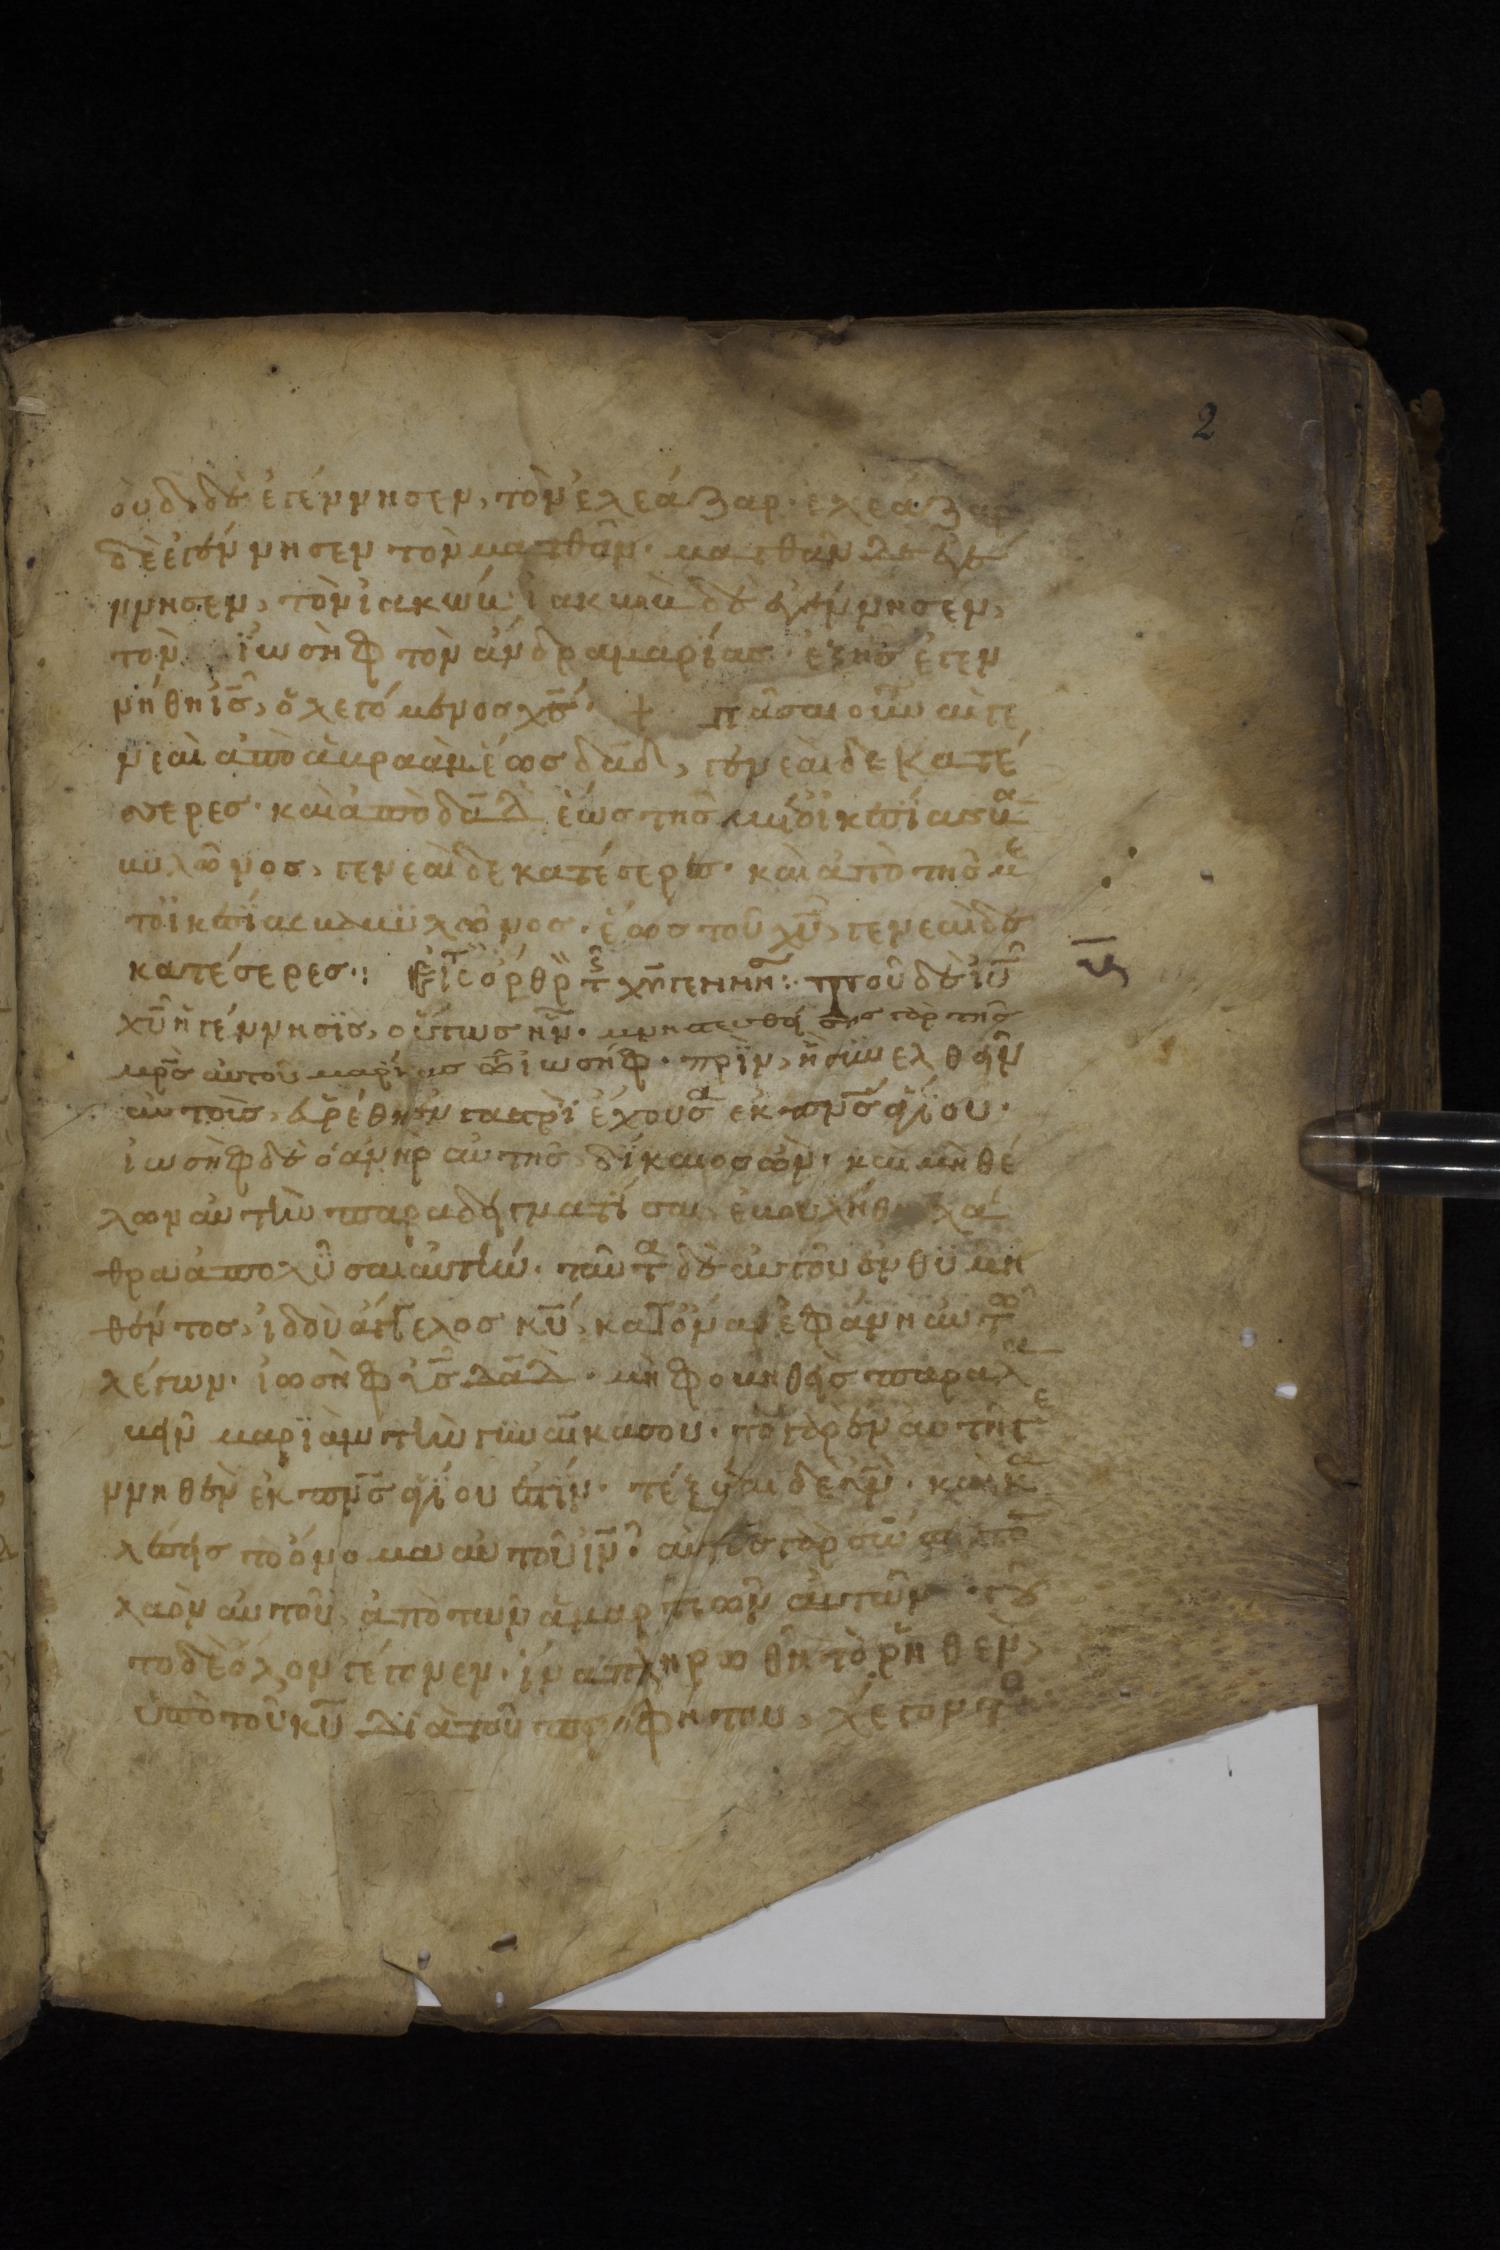 2
ὀυδ, δὲ ἐγέννησεν, τὸν ἐλεάζαρ· ἐλεάζαρ
δὲ ἐγέννησεν τὸν ματθᾶν· ματθᾶν δὲ ἐγέ
ννησεν, τὸν ἰακώβ· ἰακὼβ δὲ ἐγέννησεν,
τὸν ϊωσὴφ τὸν ἄνδρα μαρίας· ἐξ ἧς ἐγεν
νήθη ις̅, ὁ λεγόμενος χς̅· + πᾶσαι οὖν αἱ γε
νεαὶ ἀπὸ ἀβραὰμ ἑώς δα̅δ, γενεαὶ δεκατέ
σερες· καὶ ἀπὸ δα̅δ ἑὼς τῆς μετοικεσίας βα
βυλῶνος, γενεαὶ δεκατέσερες· καὶ ἀπὸ τῆς με
τοικεσίας βαβυλῶνος· ἑώς τοῦ χυ̅, γενεαὶ δε
κατέσερες·: τοῦ δὲ ιυ̅
χυ̅ ἡ γέννησϊς, οὕτως ἦν· μνηστευθείσης γὰρ τῆς
μρ̅ς αὐτοῦ μαρίας τῶ ἰωσήφ· πρὶν, ἢ συνελθεῖν
αὐτοὺς, εὑρέθη ἐν γαστρὶ ἔχουσα ἐκ πνς̅ ἁγίου·
ἰωσὴφ δὲ ὁ ἀνὴρ αὐτῆς, δίκαιος ὢν· καὶ μὴ θέ
λων αὐτὴν παραδειγματίσαι, ἐβουλήθη λά
θρα ἀπολῦσαι αὐτήν· ταῦτα δὲ αὐτοῦ ἐνθυμη
θέντος, ἰδοὺ ἄγγελος κυ̅, κατ ὄναρ ἐφάνη αὐτῶ
λέγων· ἰωσὴφ υς̅ δα̅δ· μὴ φοβηθῇς παραλα
βεῖν μαρϊὰμ τὴν γυναῖκα σου· τὸ γὰρ ἐν αὐτῇ γε
ννηθὲν ἐκ πνς̅ ἁγίου ἐστίν· τέξεται δὲ υν̅· καὶ κα
λέσεις τὸ ὄνομα αὐτοῦ ιν̅· αὐτὸς γὰρ σώσει τὸν
λαὸν αὐτοῦ, ἀπὸ τῶν ἁμαρτιῶν αὐτῶν· τοῦ
το δὲ ὅλον γέγονεν· ἵνα πληρωθῇ τὸ ῥηθὲν,
ὑπὸ τοῦ κυ̅ διὰ τοῦ προφήτου, λέγοντο